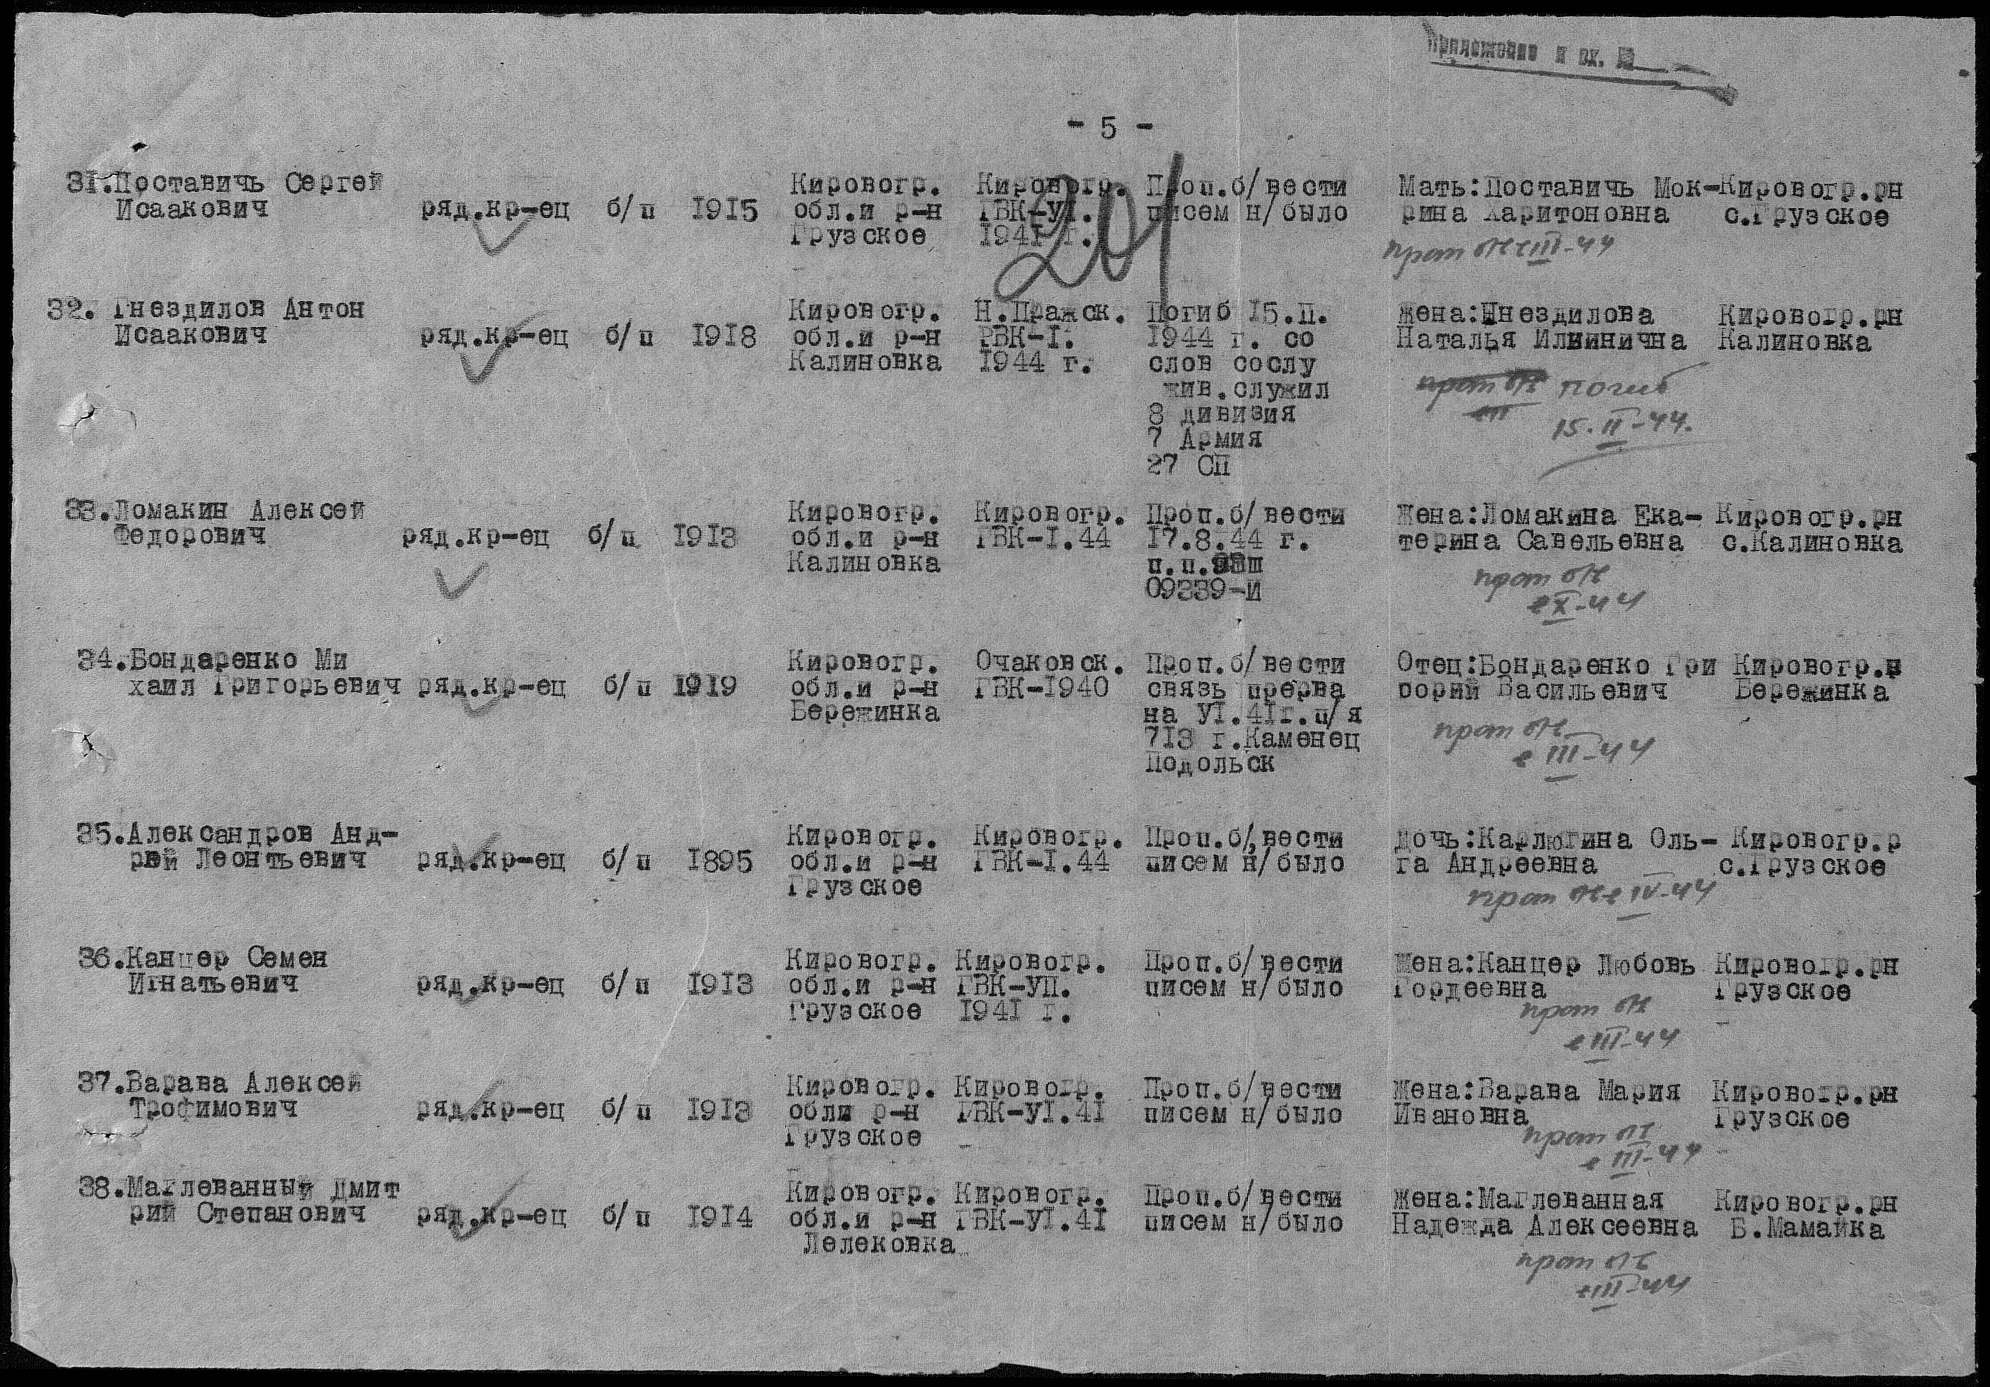 Приложение к вх. №
- 5 -
201
31.Поставичь Сергей Исаакович ряд.кр-ец б/п 1915 Кировогр. обл.и р-н Грузское Кировогр. ГВК-УI. 1941 г. Проп.б/вести писем н/было Мать:Поставичь Мокрина Харитоновна Кировогр.рн с.Грузское
III-44
32. Гнездилов Антон Исаакович ряд.кр-ец б/п 1918 Кировогр. обл.и р-н Калиновка Н.Пражск. РВК-I. 1944 г. Погиб 15.П. 1944 г. со слов сослу жив.служил 8 дивизия 7 Армия 27 СП Жена:Гнездилова Наталья Илиинична Кировогр.рн Калиновка
погиб
15.II-44.
33.Ломакин Алексей Федорович ряд.кр-ец б/п 1913 Кировогр. обл.и р-н Калиновка Кировогр. ГВК-I.44 Проп.б/вести 17.8.44 г. п.п. 09339-И Жена:Ломакина Екатерина Савельевна Кировогр.рн с.Калиновка
X-44
34.Бондаренко Ми хаил Григорьевич ряд.кр-ец б/п 1919 Кировогр. обл.и р-н Бережинка Очаковск. ГВК-1940 Проп.б/вести связь прерва на УI.41г.п/я 713 г.Каменец Подольск Отец:Бондаренко Гри горий Васильевич Кировогр.н Бережинка
III-44
35.Александров Андрей Леонтьевич ряд.кр-ец б/п 1895 Кировогр. обл.и р-н Грузское Кировогр. ГВК-I.44 Проп.б/вести писем н/было Дочь:Карлюгина Ольга Андреевна Кировогр.р с.Грузское
IV-44
36.Канцер Семен Игнатьевич ряд.кр-ец б/п 1913 Кировогр. обл.и р-н Грузское Кировогр. ГВК-УП. 1941 г. Проп.б/вести писем н/было Жена:Канцер Любовь Гордеевна Кировогр.рн Грузское
III-44
37.Варава Алексей Трофимович ряд.кр-ец б/п 1913 Кировогр. обли р-н Грузское Кировогр. ГВК-УI.41 Проп.б/вести писем н/было Жена:Варава Мария Ивановна Кировогр.рн Грузское
III-44
38.Маглеванный Дмит рий Степанович ряд.кр-ец б/п 1914 Кировогр. обл.и р-н Лелековка Кировогр. ГВК-УI.41 Проп.б/вести писем н/было Жена:Маглеванная Надежда Алексеевна Кировогр.рн Б.Мамайка
III-44